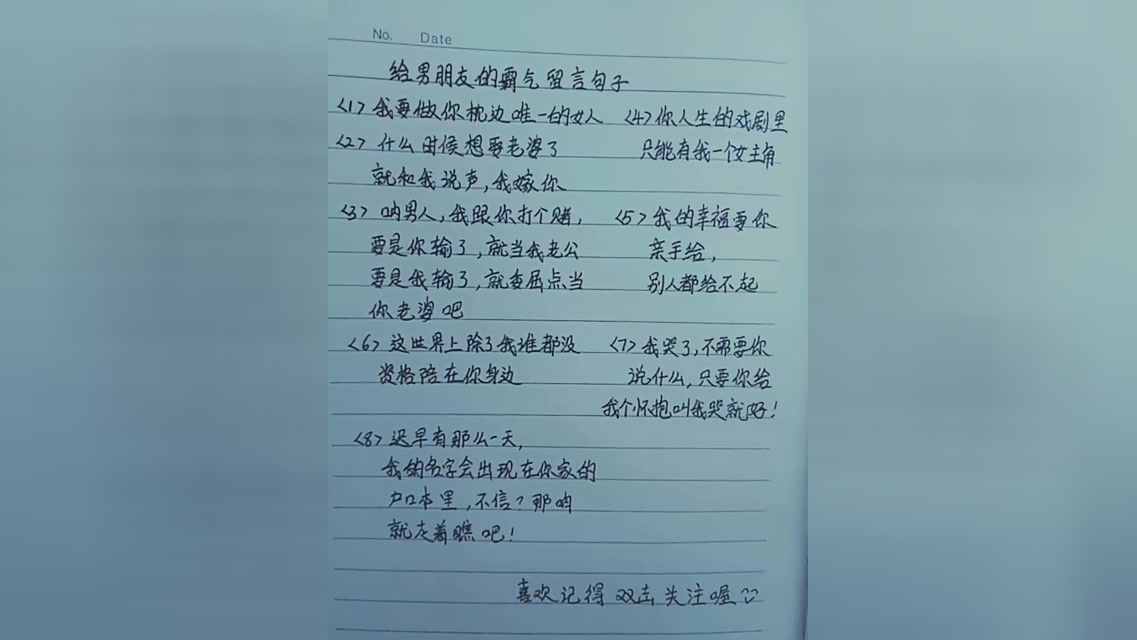 No. Date
给男朋友的霸气留言句子
<1> 我要做你枕边唯一的女人
<2> 什么时候想要老婆了
就和我说声,我嫁你
<3> 呐男人,我跟你打个赌,
要是你输了,就当我老公
要是我输了,就委屈点当
你老婆吧
<4> 你人生的戏剧里
只能有我一个女主角
<5> 我的幸福要你
亲手给,
别人都给不起
<6> 这世界上除了我谁都没
资格陪在你身边
<7> 我哭了,不需要你
说什么,只要你给
我个怀抱叫我哭就好!
<8> 迟早有那么一天,
我的名字会出现在你家的
户口本里,不信?那咱
就走着瞧吧!
喜欢记得双击关注喔